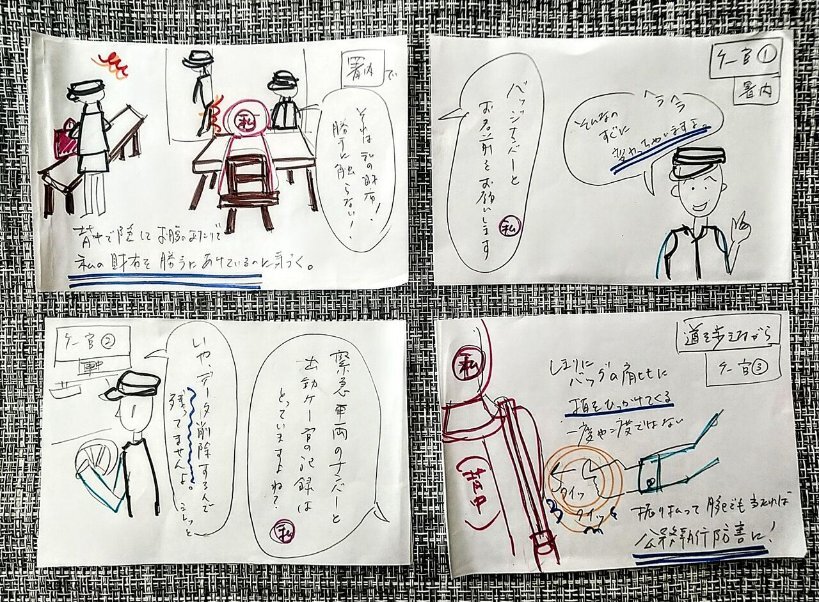 署内で
それは私の財布!
勝手に触らない!
私
背中で隠してお腹のあたりで
私の財布を勝手にあけているのに気づく。
ケー官①
署内
バッジナンバーと
お名前をお願いします
私
そんなの
すぐに
変わっちゃいますよ。
ケー官②
車中
緊急車両のナンバーと
出動ケー官の記録は
とっていますよね?
私
いや、データ削除するんで
残ってませんよ。
道を歩きながら
ケー官③
私
(背中)
しきりに
バッグの肩ひもに
指をひっかけてくる
一度や二度ではない
クイッ
クイッ
振り払って当たれば
公務執行防害に!